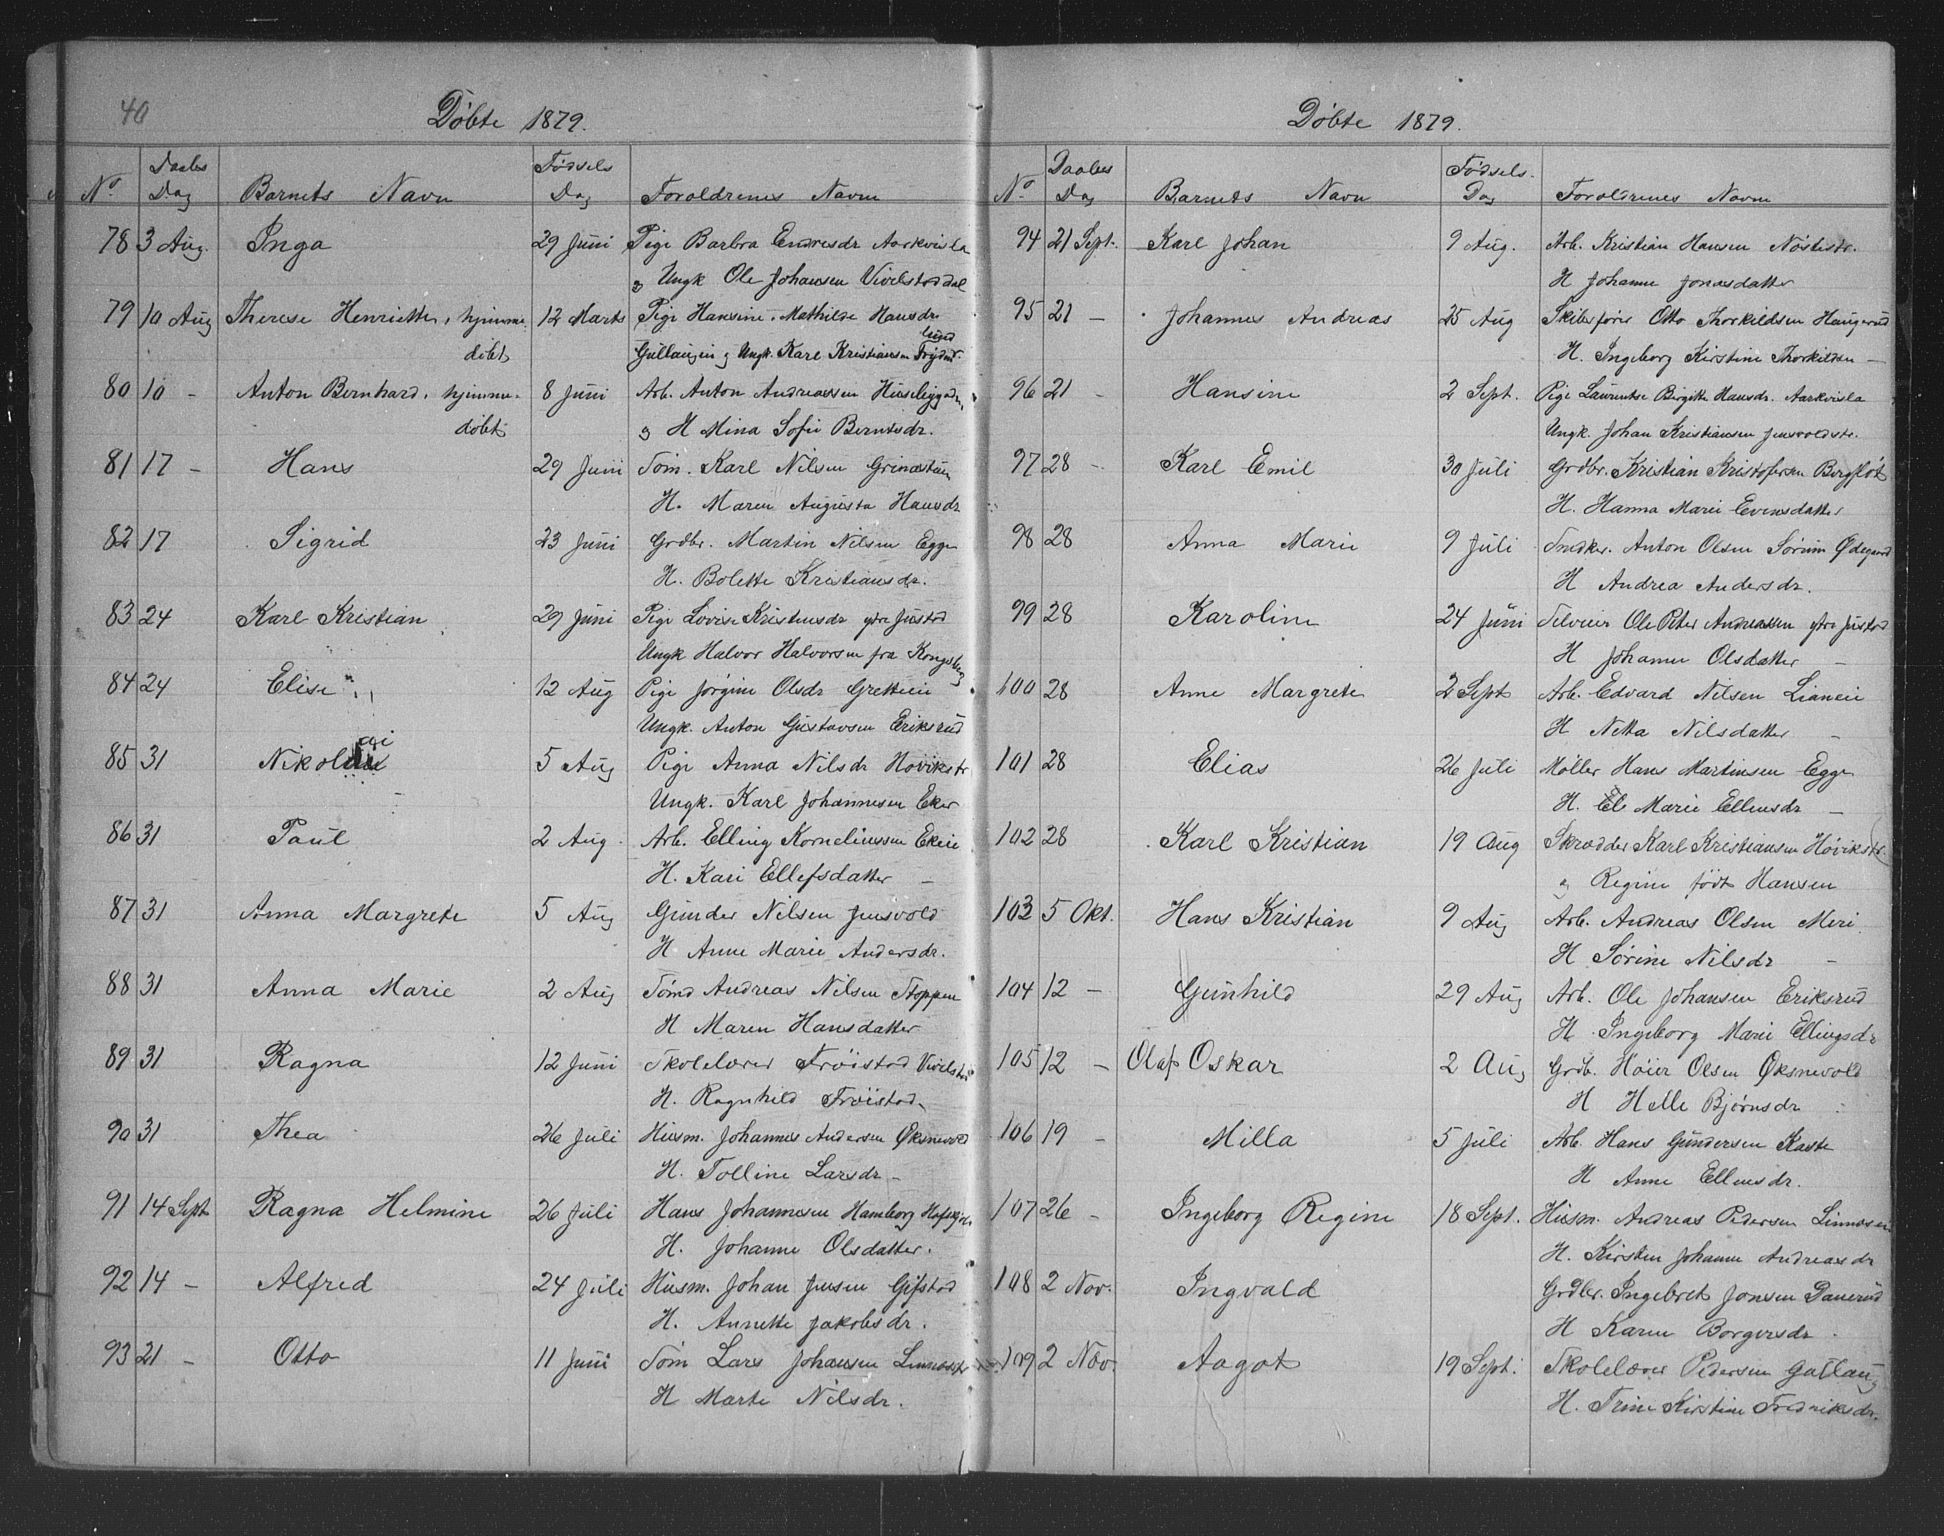 40
Döbte 1879.
No Daabs Dag Barnets Navn Födsels Dag Foroldrenes Navne
78 3 Aug. Inga 29 Juni Pige Barbra Endresdr Aarkvisla
og Ungk Ole Johansen Vivelstoddal
79 10 Aug Therese Henriette, hjemme 12 Marts Pige Hansine Mathilde Hansdr
døbt Gullaugen og Ungk. Karl Kristiansen
80 10 - Anton Bernhard, hjemme- 8 Juni Arb. Anton Andreassen
døbt og H Mina Sofie Berntsdr.
81 17 - Hans 29 Juni Töm. Karl Nilsen
H. Maren Augusta Hansdr
82 17 Sigrid 23 Juni Grdbr. Martin Nilsen Egge
H. Bolette Kristiansdr.
83 24 Karl Kristian 29 Juni Pige Lovise Kristensdr ytre Justad
Ungk Halvor Halvorsen fra Kongsberg
84 24 Elise 12 Aug Pige Jørgine Olsdr Gretteeie
Ungk. Anton Gustavsen Eriksrud
85 31 Nikolai 5 Aug Pige Anna Nilsdr Hövikstr
Ungk. Karl Johannesen Eker
86 31 Paul 2 Aug. Arb. Elling Korneliussen Ekeie
H. Kari Ellefsdatter -
87 31 Anna Margrete 5 Aug Gunder Nilsen Jensvold
H Anne Marie Andersdr.
88 31 Anna Marie 2 Aug Tömd Andreas Nilsen Stoppen
H Maren Hansdatter
89 31 Ragna 12 Juni Skolelærer Fröistad
H. Ragnhild Fröistad
90 31 Thea 26 Juli Husm. Johannes Andersen Øksnevold
H. Tolline Larsdr -
91 14 Sept Ragna Helmine 26 Juli Hans Johannesen Hamborg
H. Johanne Olsdatter.
92 14 - Alfred 24 Juli Husm. Johan Jensen Gifstad
H. Annette Jakobsdr.
93 21 - Otto 11 Juni Töm Lars Johansen
H Marte Nilsdr.
Döbte 1879.
No Daabes Dag Barnets Navn Födsels. Dag Foroldrenes Navne
94 21 Sept. Karl Johan 9 Aug. Arb. Kristian Hansen Nöstestr.
H Johanne Jonasdatter
95 21 - Johannes Andreas 25 Aug Skibsförer Otto Thorkildsen Haugerud
H. Ingeborg Kirstine Thorkildsen -
96 21 - Hansine 2 Sept. Pige Laurentse Birgitte Hansdr. Aarkvisla
Ungk. Johan Kristiansen Jensvoldstr.
97 28 - Karl Emil 30 Juli Grdbr. Kristian Kristofersen Bergflöt
H. Hanna Marie Evensdatter
98 28 Anna Marie 9 Juli Snedker. Anton Olsen Sörum Ødegaard
H Andrea Andersdr.
99 28 Karoline 24 Juni Ole Peter Andreassen ytre Justad
H Johanne Olsdatter -
100 28 Anne Margrete 2 Sept Arb. Edvard Nilsen Lianeie
H Netta Nilsdatter -
101 28 Elias 26 Juli Møller Hans Martinsen Egge
H. Marie Ellensdr -
102 28 Karl Kristian 19 Aug Skrædder Karl Kristiansen Hövikstr.
og Regine født Hansen
103 5 Okt. Hans Kristian 9 Aug Arb. Andreas Olsen Meri
H Sörine Nilsdr -
104 12 - Gunhild 29 Aug Arb. Ole Johansen Eriksrud
H. Ingeborg Marie Ellingsdr
105 12 - Olaf Oskar 2 Aug Grdb. Höier Olsen Øksnevold
H Helle Bjørnsdr
106 19 - Milla 5 Juli Arb. Hans Gundersen Kaste
H Anne Ellensdr.
107 26 - Ingeborg Regine 18 Sept. Husm. Andreas Pedersen
H. Kirsten Johanne Andreasdr
108 2 Nov. Ingvald Grdbr. Ingebret Jonsen
H Karen Borgersdr.
109 2 Nov. Aagot 19 Sept. Skolelærer Pedersen Gullaug
H. Trine Kirstine Fredriksdr.